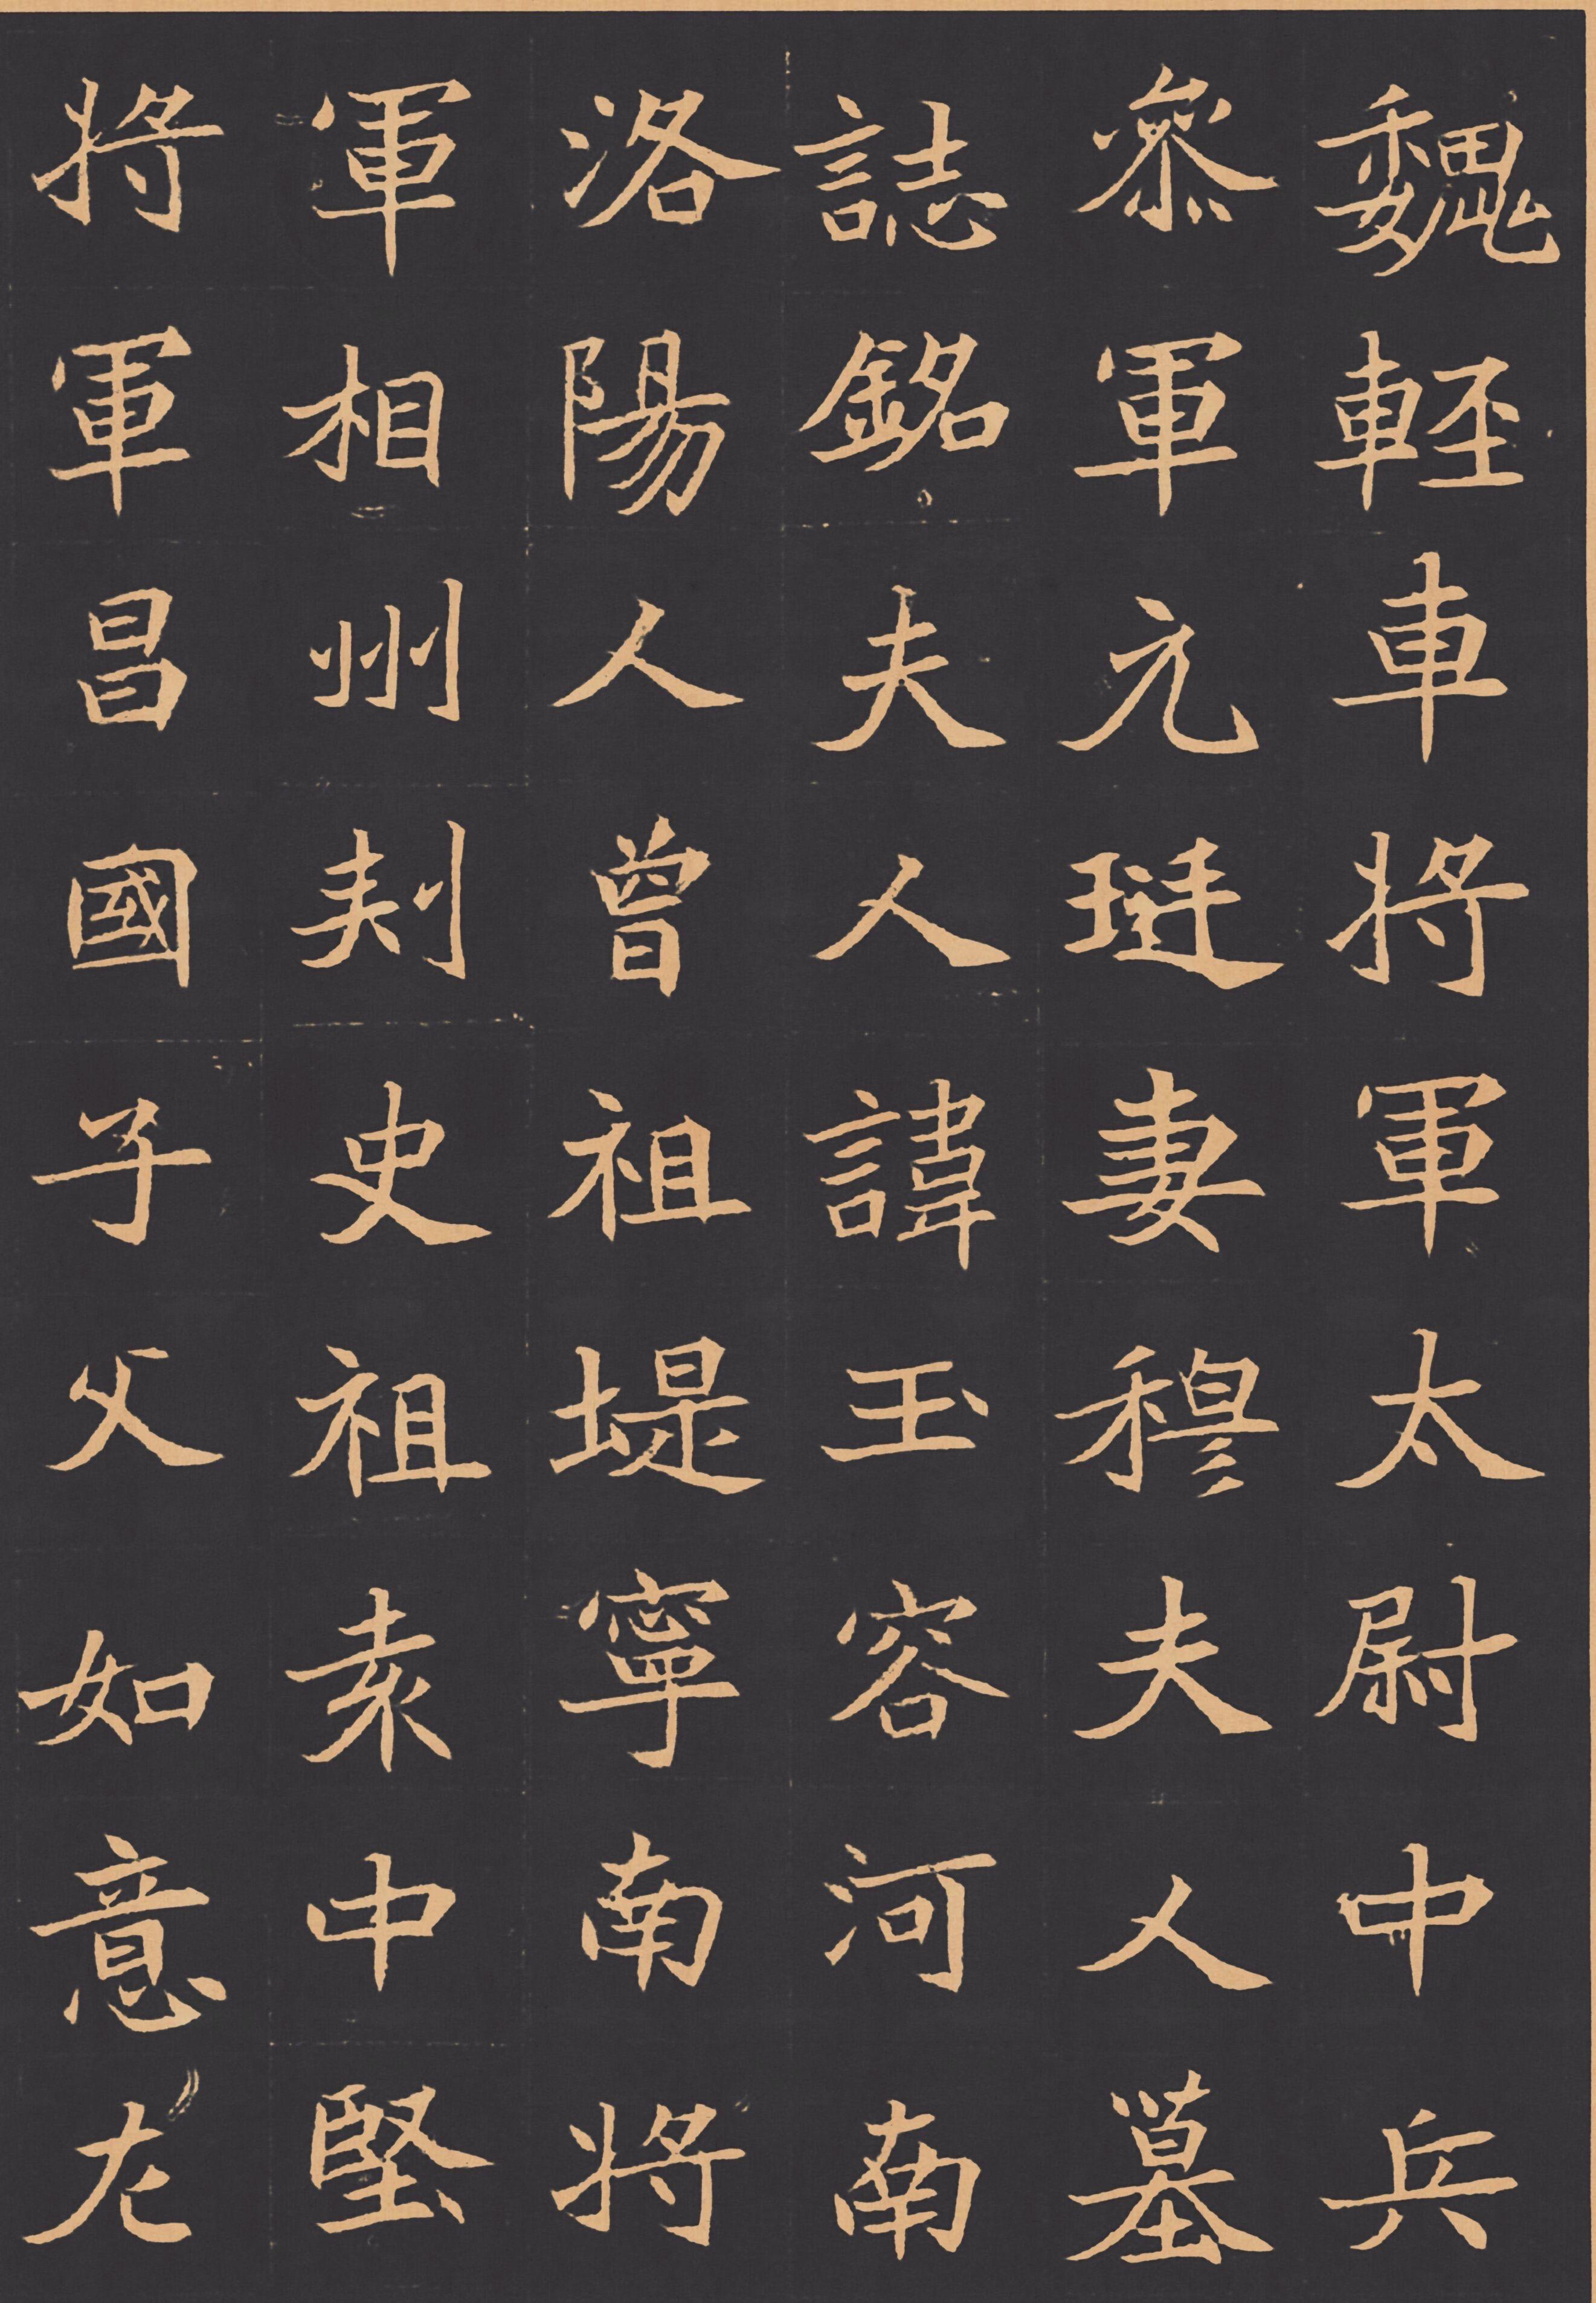 魏輕車將軍太尉中兵
參軍元珽妻穆夫人墓
誌銘夫人諱玉容河南
洛陽人曾祖堤寧南將
軍相州刺史祖袁中堅
將軍昌國子父如意左